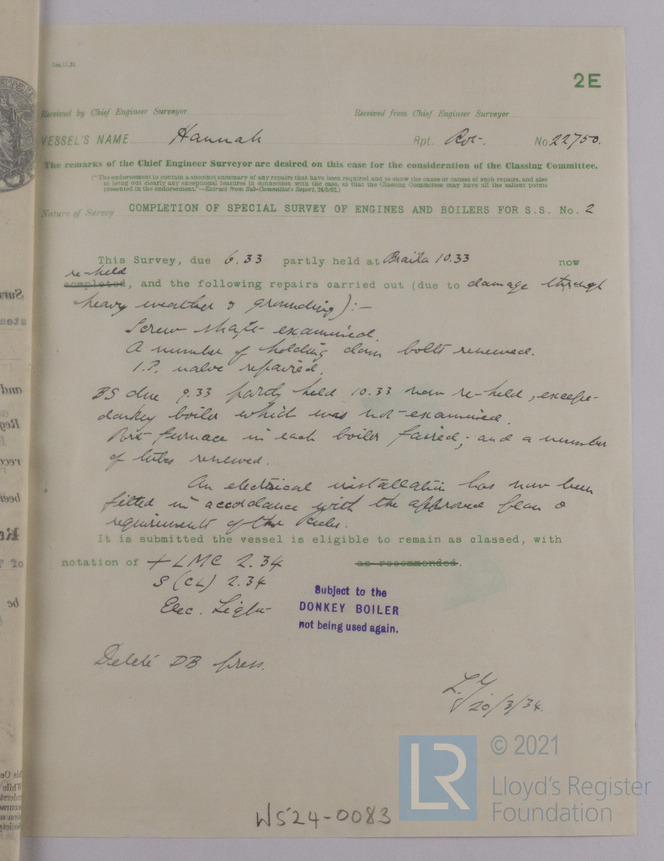 2E
Received by Chief Engineer Surveyor Received from Chief Engineer Surveyor
VESSEL'S NAME Hannah Rpt. Rot. No 22750.
The remarks of the Chief Engineer Surveyor are desired on this case for the consideration of the Classing Committee.
("The endorsement to contain a succinct summary of any repairs that have been required and to show the cause or causes of such repairs, and also
to bring out clearly any exceptional features in connection with the case, so that the Classing Committee may have all the salient points
presented in the endorsement."—Extract from Sub-Committee's Report,
Nature of Survey COMPLETION OF SPECIAL SURVEY OF ENGINES AND BOILERS FOR S.S. No. 2
This Survey, due 6.33 partly held at Braila 10.33 now
re-held
completed, and the following repairs carried out (due to damage through
heavy weather & grounding):-
Screw shaft examined.
A number of holding down bolts renewed.
I.P. valve repaired.
BS due 9.33 partly held 10.33 now re-held, except
donkey boiler which was not examined.
Port furnace in each boiler faired; and a number
of tubes renewed.
An electrical installation has now been
fitted in accordance with the approved plan &
requirements of the Rules.
It is submitted the vessel is eligible to remain as classed, with
notation of + LMC 2.34 as recommended.
S (CL) 2.34
Elec. Light
Subject to the
DONKEY BOILER
not being used again.
Delete DB press.
20/3/34.
LR
© 2021
Lloyd's Register
Foundation
WS24-0083